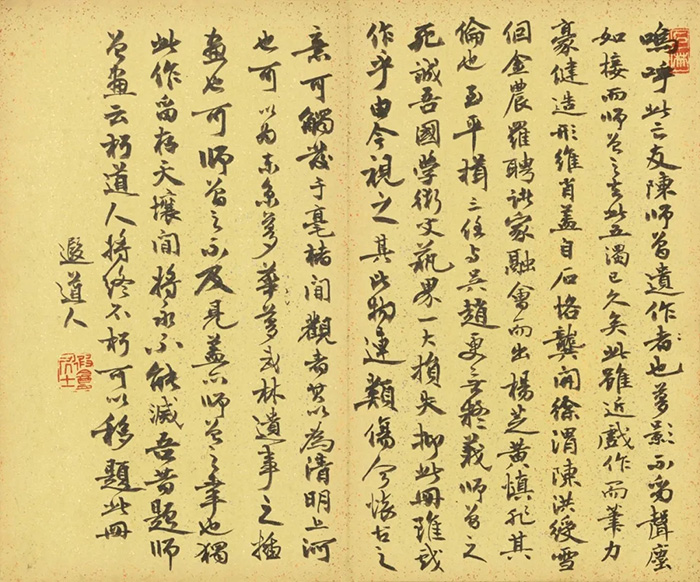 嗚呼此亡友陳師曾遺作者也夢影不留聲塵
如接而師曾之去此五濁已久矣此雖近戲作而筆力
豪健造形維肖蓋自石恪龔開徐渭陳洪綬雪
個金農羅聘諸家融會而出楊芝黃慎非其
倫也至平揖三任与吳趙更无疑義師曾之
死誠吾國學術文藝界一大損失抑此冊雖戲
作乎由今視之其比物連類傷今懷古之
意可觸發于毫楮間觀者以為清明上河
也可以为東京夢華夢武林遺事之插
畫也可師曾之不及見蓋亦師曾之幸也獨
此作留存天壤間將永不能滅吾昔題師
曾畫云朽道人將終不朽可以移題此冊
遐道人